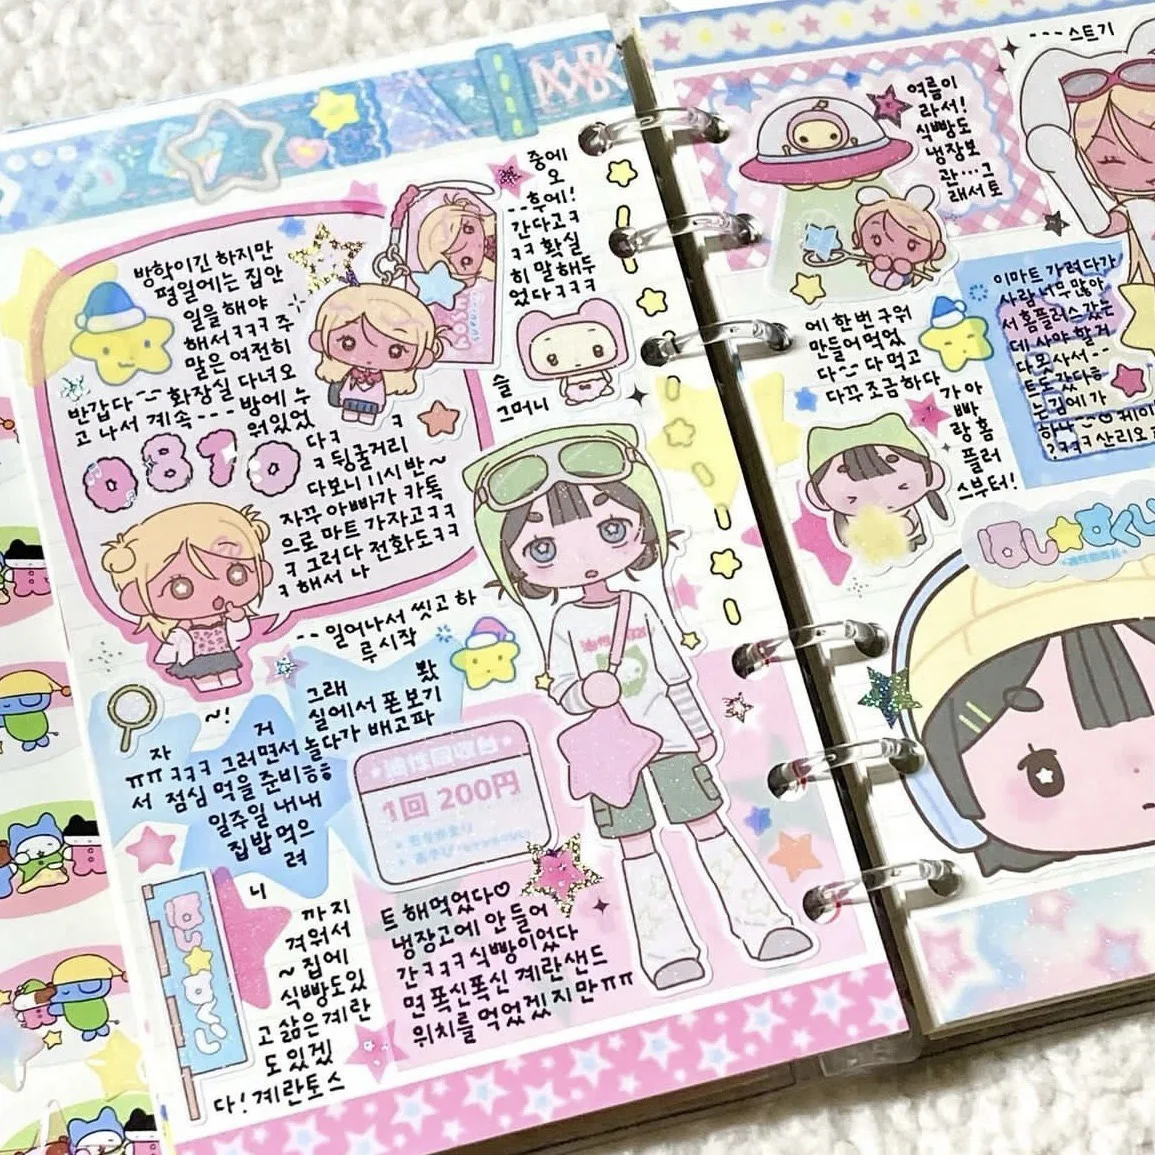 방학이긴 하지만
평일에는 집안
일을 해야
해서ㅋㅋㅋ 주
말은 여전히
반갑다~ 화장실 다녀오
고 나서 계속--- 방에 누
워있었
다ㅋ ㅋ
ㅋ 뒹굴거리
다보니 11시반~
자꾸 아빠가 카톡
으로 마트 가자고ㅋㅋ
ㅋ 그러다 전화도ㅋㅋ
ㅋ 해서 나
0810
중에
오
--후에!
간다고ㅋ
ㅋ 확실
히 말해두
었다ㅋㅋㅋ
슬
그머니
--일어나서 씻고 하
루시작
그래 봤
실에서 폰보기
~! 거
놀다가 배고파
자
ㅠㅠㅋㅋㅋ 그러면서
서 점심 먹을 준비ㅎㅎ
일주일 내내
집밥 먹으
려
니
까지
겨워서
~집에
식빵도있
고 삶은계란
도 있겠
다! 계란토스
트 해먹었다♡
냉장고에 안들어
간ㅋㅋㅋ 식빵이었다
면 폭신폭신 계란샌드
위치를 먹었겠지만ㅠㅠ
1回 200円
はし★すくい
여름이
라서!
식빵도
냉장보
관...그
래서 토
---스트기
에 한번 구워
만들어 먹었
다~ 다 먹고
다꾸조금하다
가 아
빠
랑 홈
플러
스부터!
이마트 가려다가
사람 너무많아
서 홈플러스 갔는
데 사야 할거
다 못사서--
はし★すくい